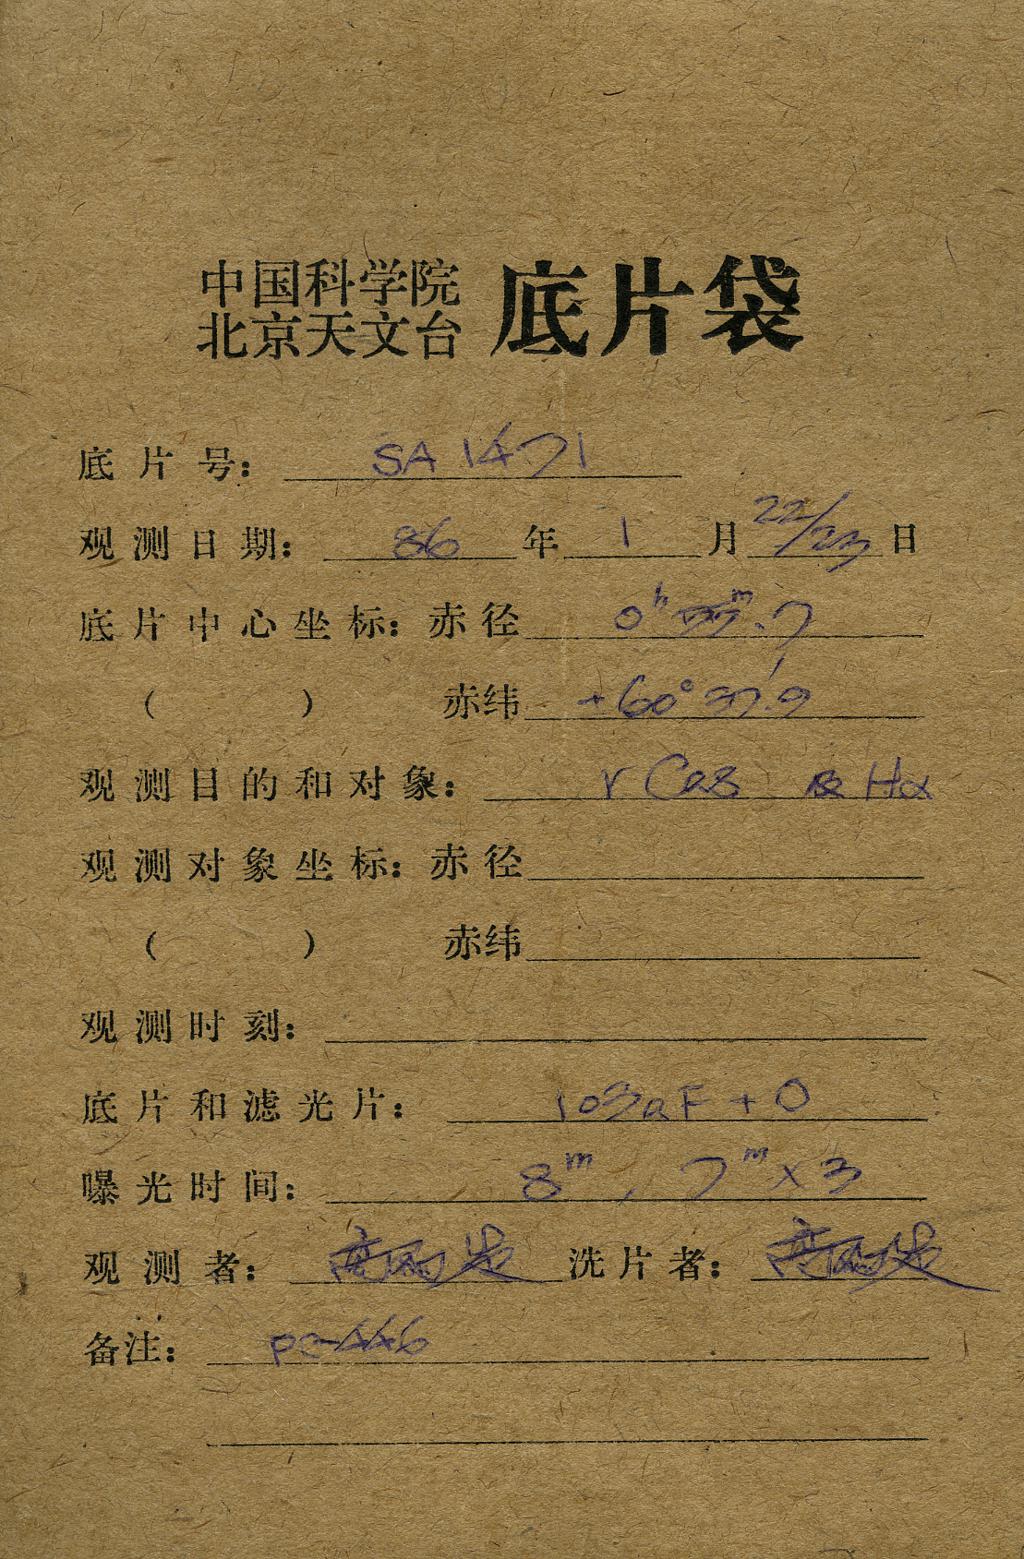 中国科学院
北京天文台
底片袋
底片号: SA 1471
观测日期: 86 年 1 月 22/23 日
底片中心坐标: 赤径 0ʰ ᵐ.7
( ) 赤纬 +60° 37'.9
观测目的和对象: γ Cas Hα
观测对象坐标: 赤径
( ) 赤纬
观测时刻:
底片和滤光片: 103aF + O
曝光时间: 8ᵐ, 7ᵐ×3
观测者: 洗片者:
备注: